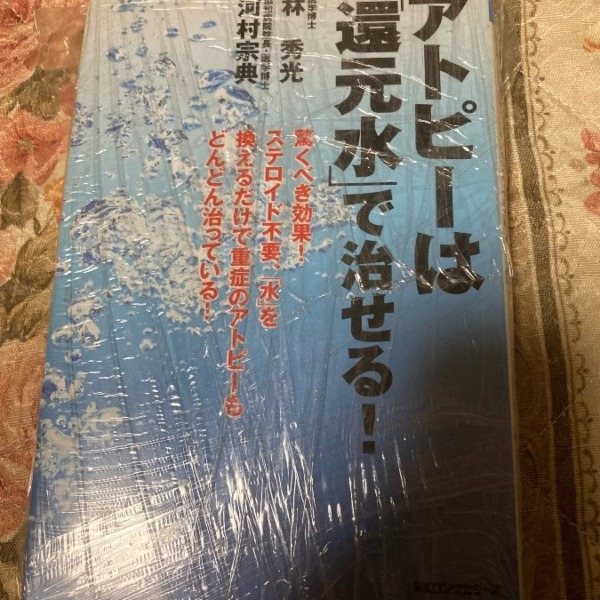 アトピーは
「還元水」で治せる!
驚くべき効果!
ステロイド不要、「水」を
換えるだけで重症のアトピーも
どんどん治っている!
林 秀光
河村宗典